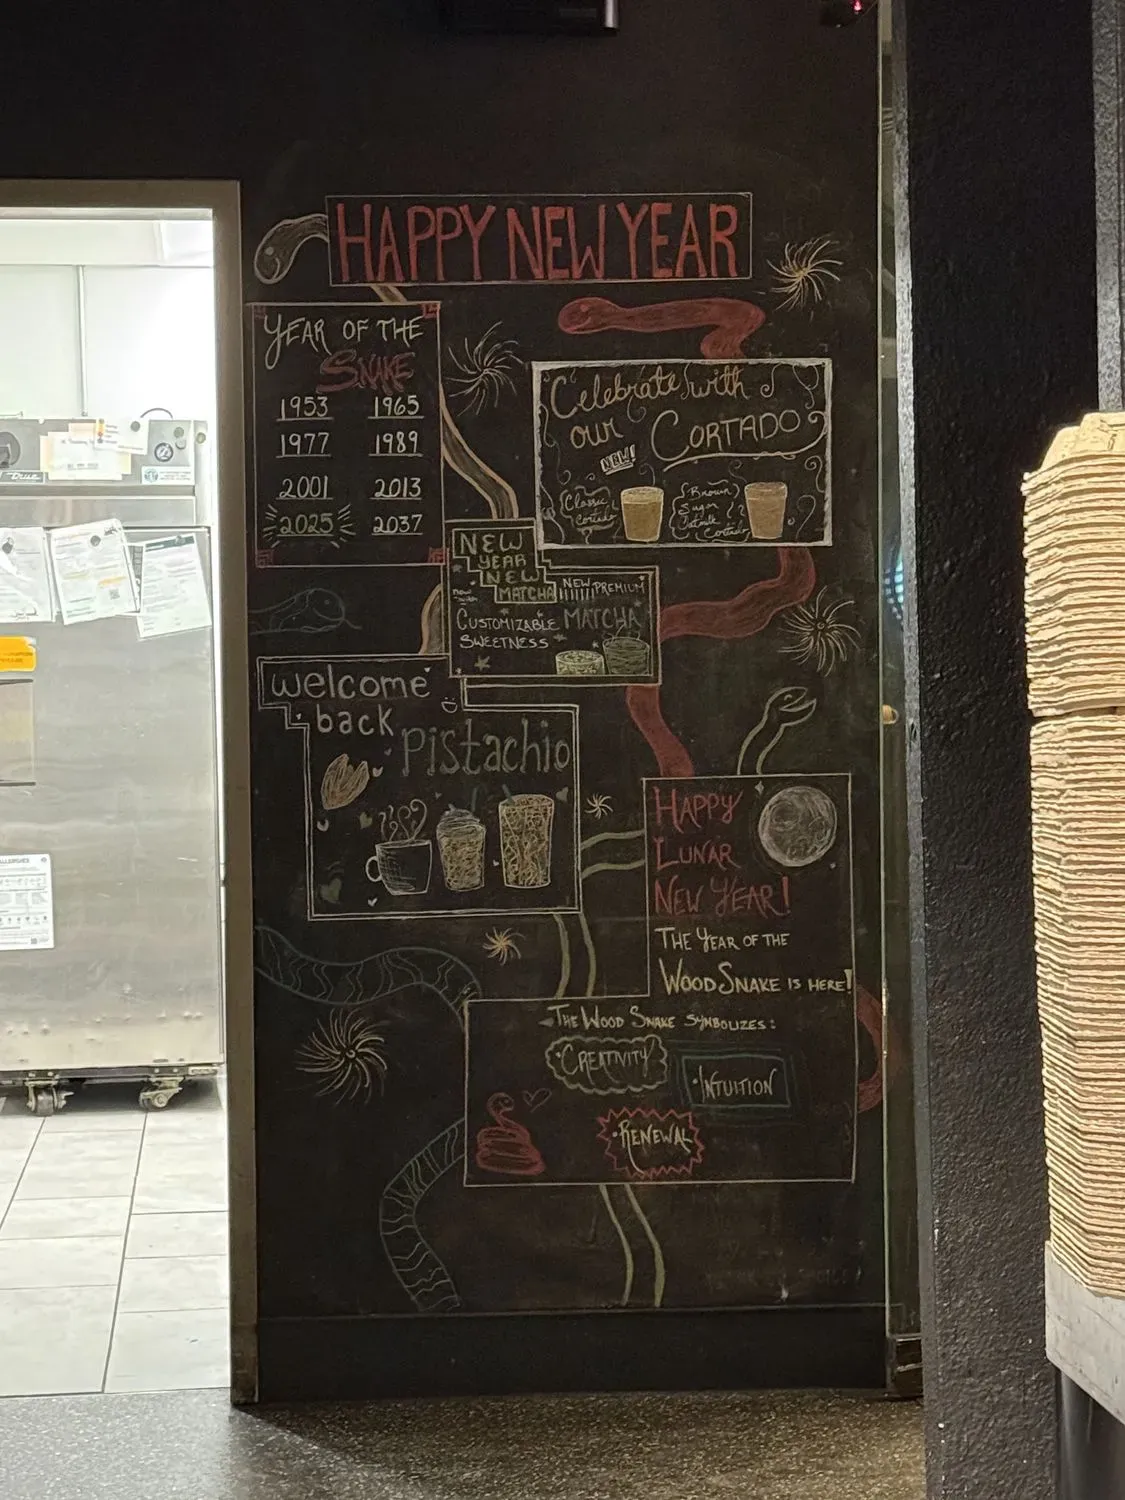 HAPPY NEW YEAR
YEAR OF THE
SNAKE
1953 1965
1977 1989
2001 2013
2025 2037
Celebrate with
our CORTADO
NEW!
Classic
Cortado
Brown
Sugar
Oatmilk
Cortado
NEW
YEAR
NEW
MATCHA
now
with
CUSTOMIZABLE
SWEETNESS
NEW PREMIUM
MATCHA
welcome
back
Pistachio
HAPPY
LUNAR
NEW YEAR!
THE YEAR OF THE
WOOD SNAKE IS HERE!
THE WOOD SNAKE SYMBOLIZES:
·CREATIVITY
·INTUITION
·RENEWAL
True